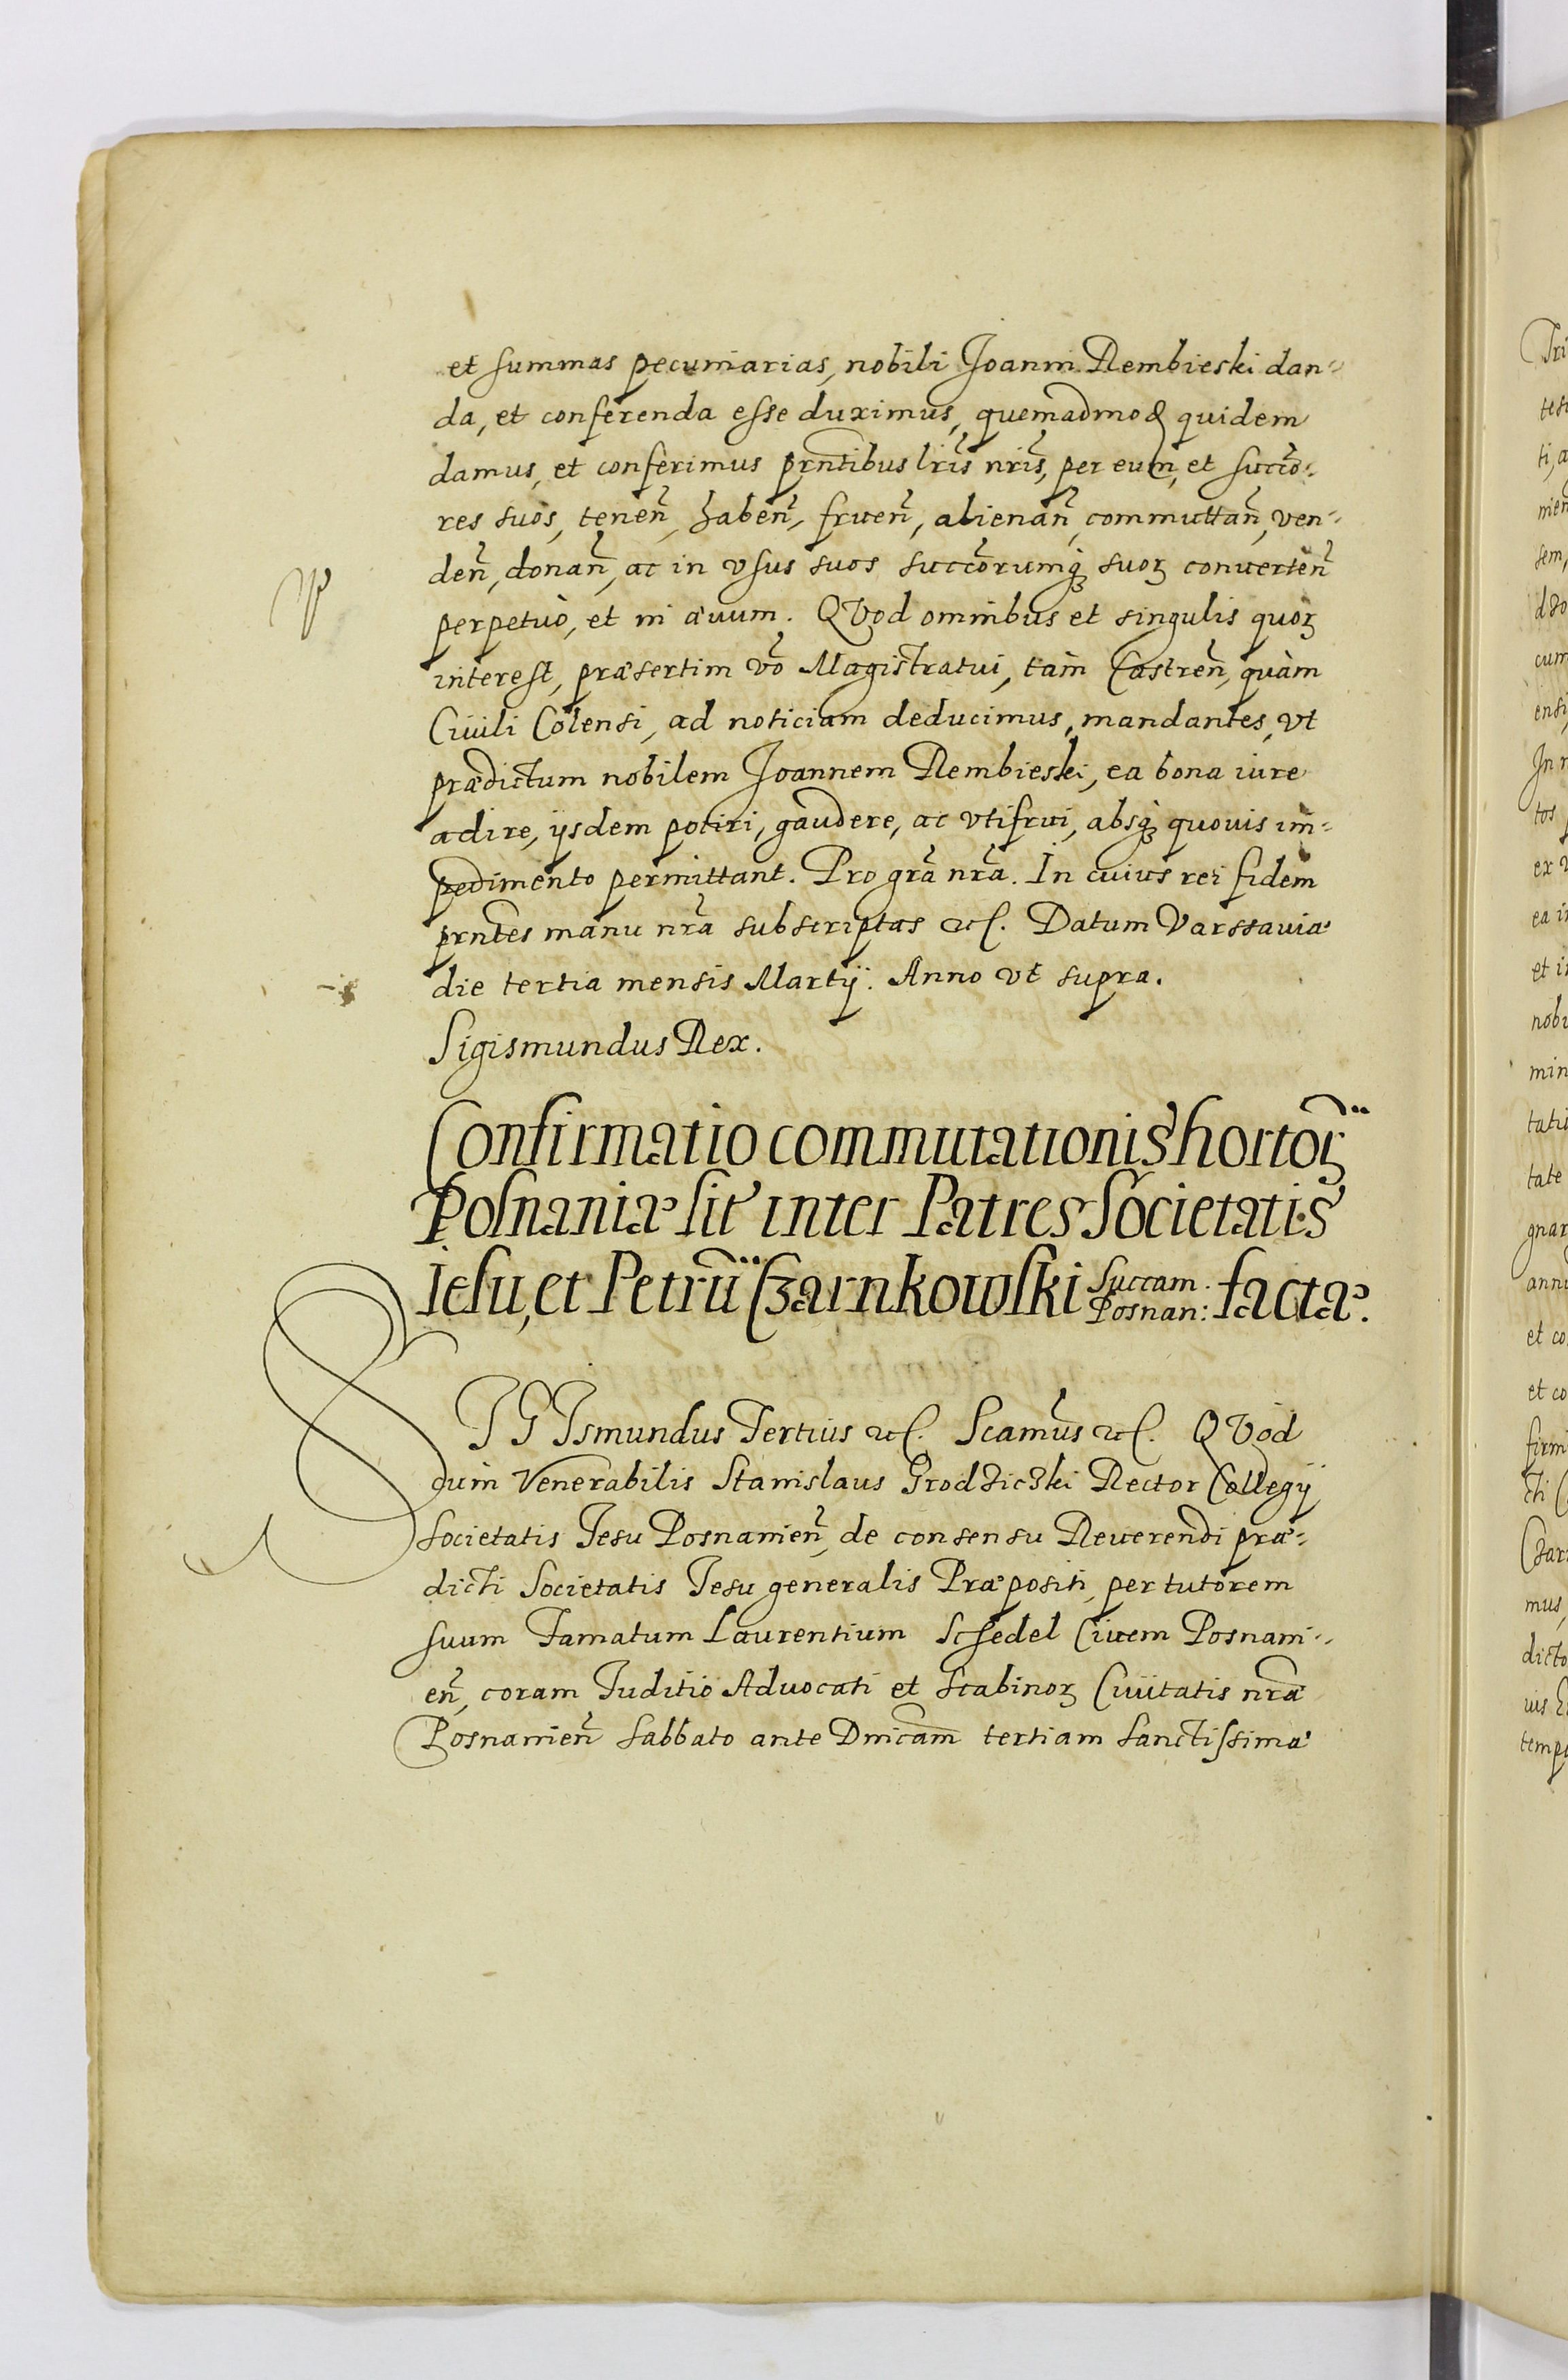 et summas pecuniarias, nobili Joanni Rembieski dan=
da, et conferenda esse duximus, quemadmod quidem
damus, et conferimus prntibus lris nris, per eum, et succo=
res suos, tenen, haben, fruen, alienan, commuttan, ven=
den, donan, ac in vsus suos succorumq suoꝝ conuerten
perpetuò, et in æuum. QVod omnibus et singulis quoꝝ
interest, præsertim vo Magistratui, tàm Castren, quàm
Ciuili Colensi, ad noticiam deducimus, mandantes, vt
prædictum nobilem Joannem Rembieski, ea bona iure
adire, ijsdem potiri, gaudere, ac vtifrui, absq quouis im=
pedimento permittant. Pro gra nra. In cuius rei fidem
prntes manu nra subscriptas etc. Datum Varssauiæ
die tertia mensis Martij. Anno vt supra.
Sigismundus Rex.
Confirmatio commutationis hortoꝝ
Posnaniæ sit inter Patres Societatis
Iesu, et Petrũ Czarnkowski Succam. Posnan: factæ.
SIGIsmundus Tertius etc. Scamus etc. QVod
cum Venerabilis Stanislaus Grodziczki Rector Collegij
Societatis Jesu Posnanien, de consensu Reuerendi præ=
dicti Societatis Jesu generalis Præpositi, per tutorem
suum Famatum Laurentium Schedel Ciuem Posnani=
en, coram Juditio Aduocati et Scabinoꝝ Ciuitatis nræ
Posnanien Sabbato ante Dnicam tertiam Sanctissimæ